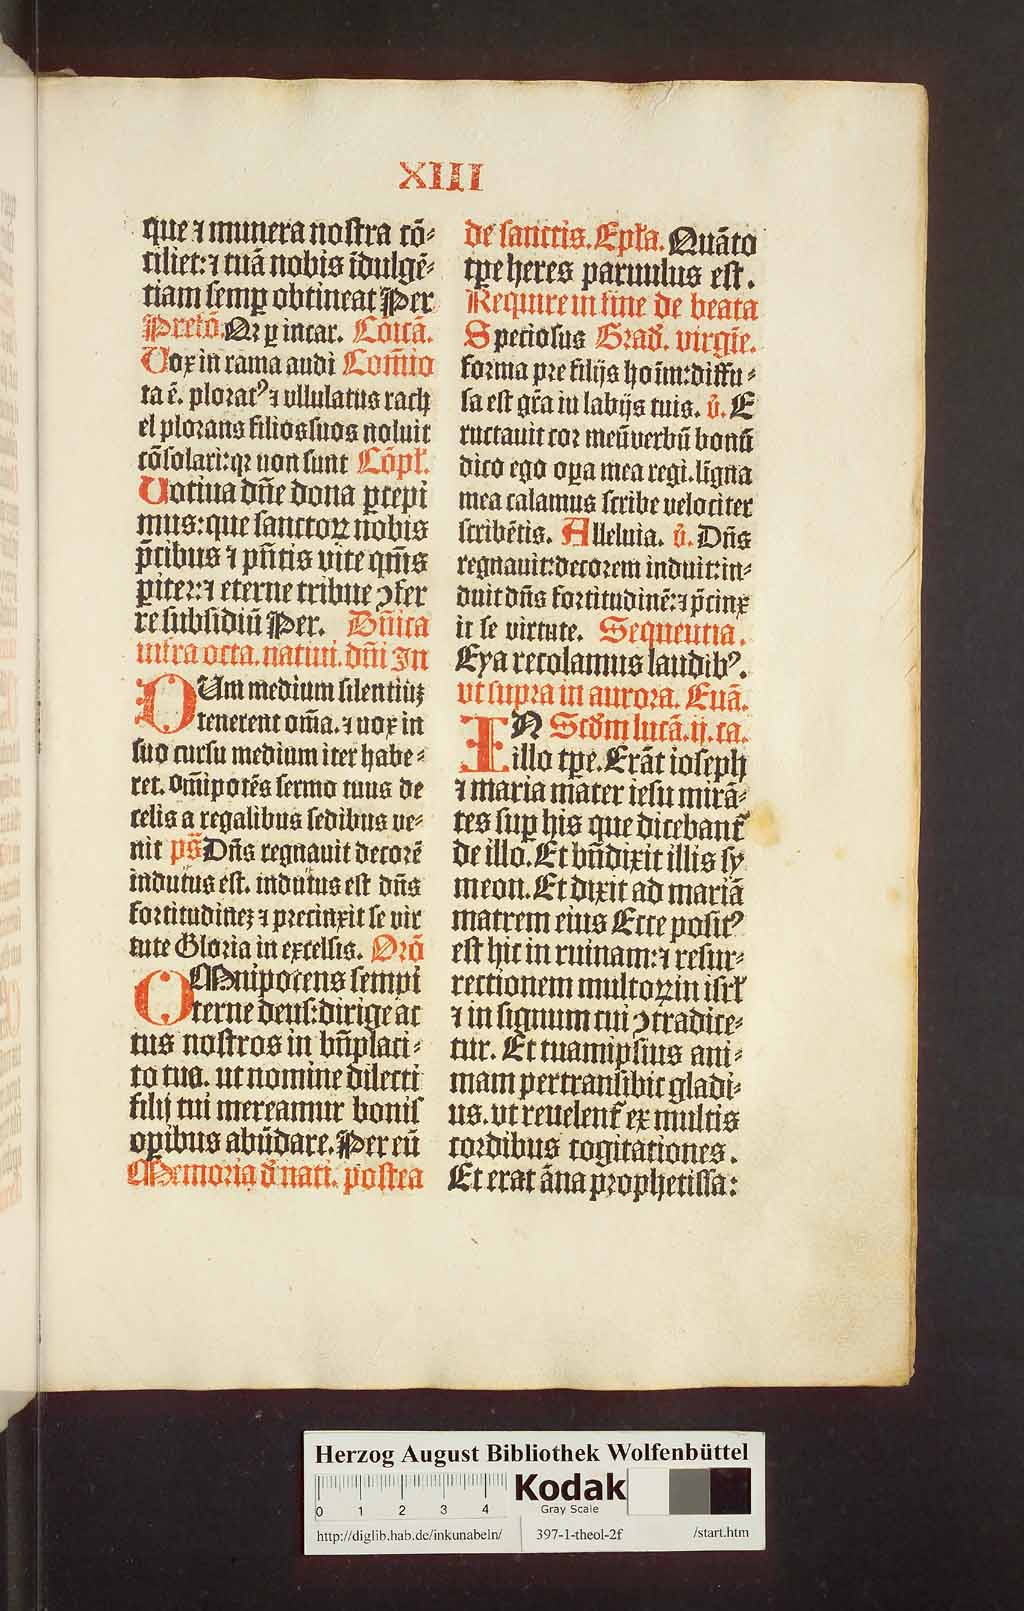 XIIII
que ⁊ munera nostra cō⸗
ciliet: ⁊ tuā nobis īdulgē⸗
tiam semꝑ obtineat Per
Prefō. Nꝛ ꝑ incar. Cōicā.
Vox in rama audi Com̄io
ta ē. ploratꝰ ⁊ vllulatus rach
el plorans filios suos noluit
cōsolari: qꝛ non sunt Cōpl̄.
Votiua dn̄e dona ꝑcepi
mus: que sanctoꝝ nobis
p̄cibus ⁊ pn̄tis vite qm̄s
ꝑiter: ⁊ eterne tribue ꝯfer
re subsidiū Per. Dn̄ica
infra octa. natiui. dn̄i In
DUm medium silentiuꝫ
tenerent om̄a. ⁊ nox in
suo cursu medium iter habe⸗
ret. om̄ipotēs sermo tuus de
celis a regalibus sedibus ve⸗
nit ps̄ Dn̄s regnauit decorē
indutus est. indutus est dn̄s
fortitudineꝫ ⁊ precinxit se vir
tute Gloria in excelsis. Orō
OMnipotens sempi
terne deus: dirige ac
tus nostros in bn̄placi⸗
to tuo. ut nomine dilecti
filij tui mereamur bonis
oꝑibus abūdare. Per eū
Memoria d̄ nati. postea
de sanctis. Epl̄a. Quāto
tꝑe heres paruulus est.
Require in fine de beata
Speciosus Grad̄. virgīe.
forma pre filijs hoīm: diffu⸗
sa est gr̄a in labijs tuis. v̄. E
ructauit cor meū verbū bonū
dico ego oꝑa mea regi. līgna
mea calamus scribe velociter
scribētis. Alleluia. v̄. Dn̄s
regnauit: decorem induit: in⸗
duit dn̄s fortitudinē: ⁊ p̄cinx
it se virtute. Sequentia.
Eya recolamus laudibꝰ.
vt supra in aurora. Euā.
IN Scd̄m lucā. ij. ca.
illo tꝑe. Erāt ioseph
⁊ maria mater iesu mirā⸗
tes suꝑ his que dicebant᷑
de illo. Et bn̄dixit illis sy
meon. Et dixit ad mariā
matrem eius Ecce positꝰ
est hic in ruinam: ⁊ resur⸗
rectionem multoꝝ in isrl̄
⁊ in signum cui ꝯtradice⸗
tur. Et tuam ipsius ani⸗
mam pertransibit gladi⸗
us. vt reuelent᷑ ex multis
cordibus cogitationes.
Et erat āna prophetissa:
Herzog August Bibliothek Wolfenbüttel
0 1 2 3 4
Kodak
Gray Scale
http://diglib.hab.de/inkunabeln/ 397-1-theol-2f /start.htm